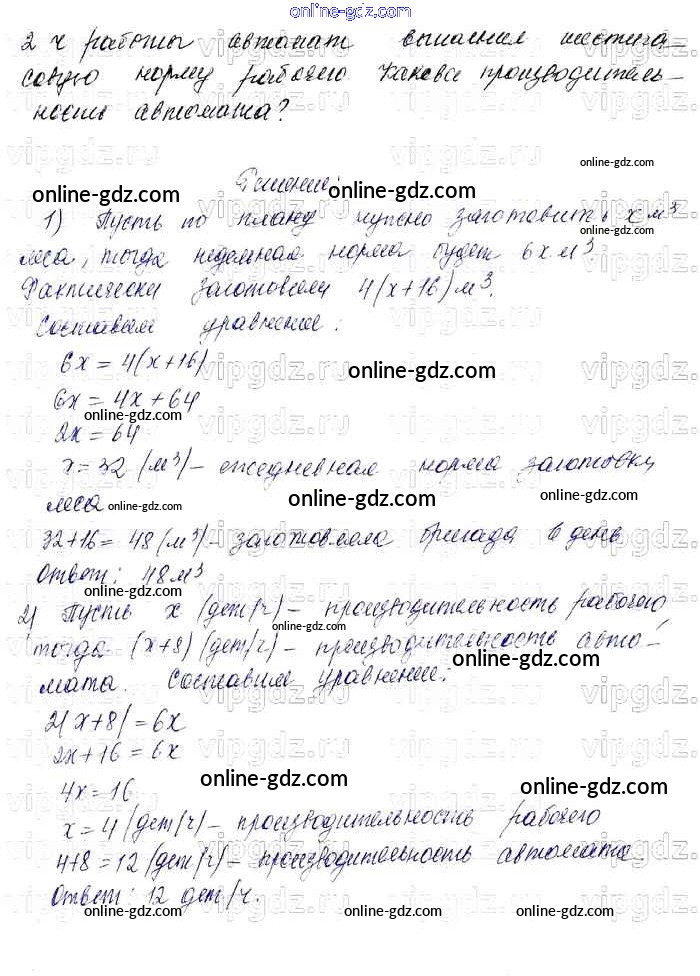 online-gdz.com
2 ч работы автомат выполнил шестича-
совую норму рабочего. Какова производитель-
ность автомата?
vipgdz.ru
online-gdz.com
Решение:
online-gdz.com online-gdz.com
1) Пусть по плану нужно заготовить x м³
леса, тогда недельная норма будет 6x м³.
Фактически заготовили 4(x+16) м³.
Составим уравнение:
6x = 4(x+16)
online-gdz.com
6x = 4x + 64
online-gdz.com
2x = 64
x = 32 (м³) – ежедневная норма заготовки
леса online-gdz.com online-gdz.com
32+16 = 48 (м³) – заготовляла бригада в день
Ответ: 48 м³
online-gdz.com online-gdz.com
2) Пусть x (дет/ч) – производительность рабочего,
online-gdz.com
тогда (x+8) (дет/ч) – производительность авто-
online-gdz.com
мата. Составим уравнение:
2(x+8) = 6x
2x+16 = 6x
online-gdz.com online-gdz.com
4x = 16
x = 4 (дет/ч) – производительность рабочего
4+8 = 12 (дет/ч) – производительность автомата.
Ответ: 12 дет/ч.
online-gdz.com online-gdz.com online-gdz.com